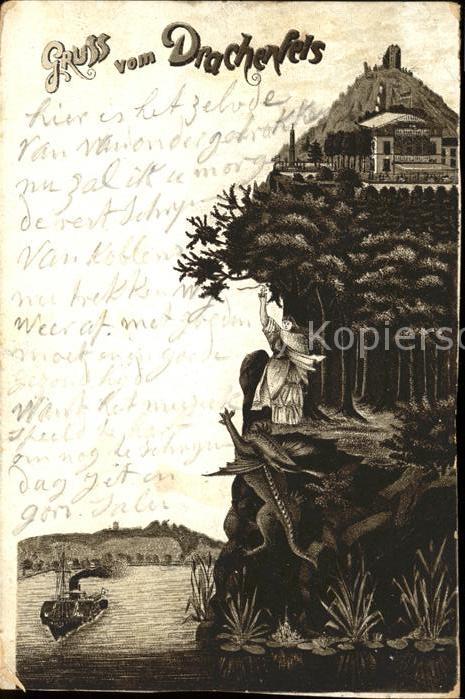 Gruss vom Drachenfels
hier is het zelvde
van van onder getrokke
nu zal ik u morg
de rest Schryv
van Koblenz
nu trekken wy
weer af. met goeden
moet en en goede
gezondhyd
Want het muziek
speeld
om nog te Schryven
dag Jet en
gon. Salu
Kopiersc